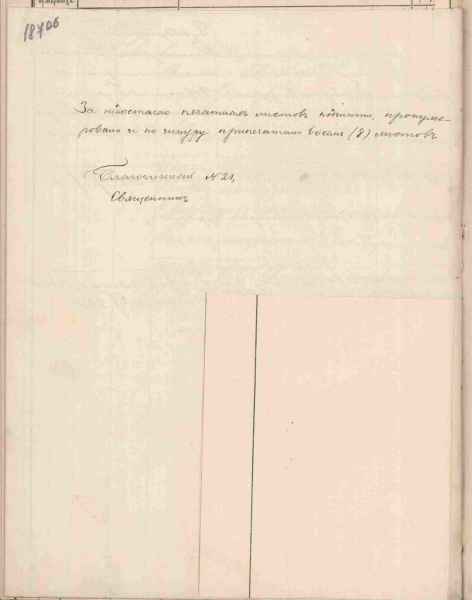 18706
За недостаткомъ печатныхъ листовъ подшито, пронуме-
ровано и по шнуру припечатано восемь (8) листовъ
Благочинный № 21,
Священникъ